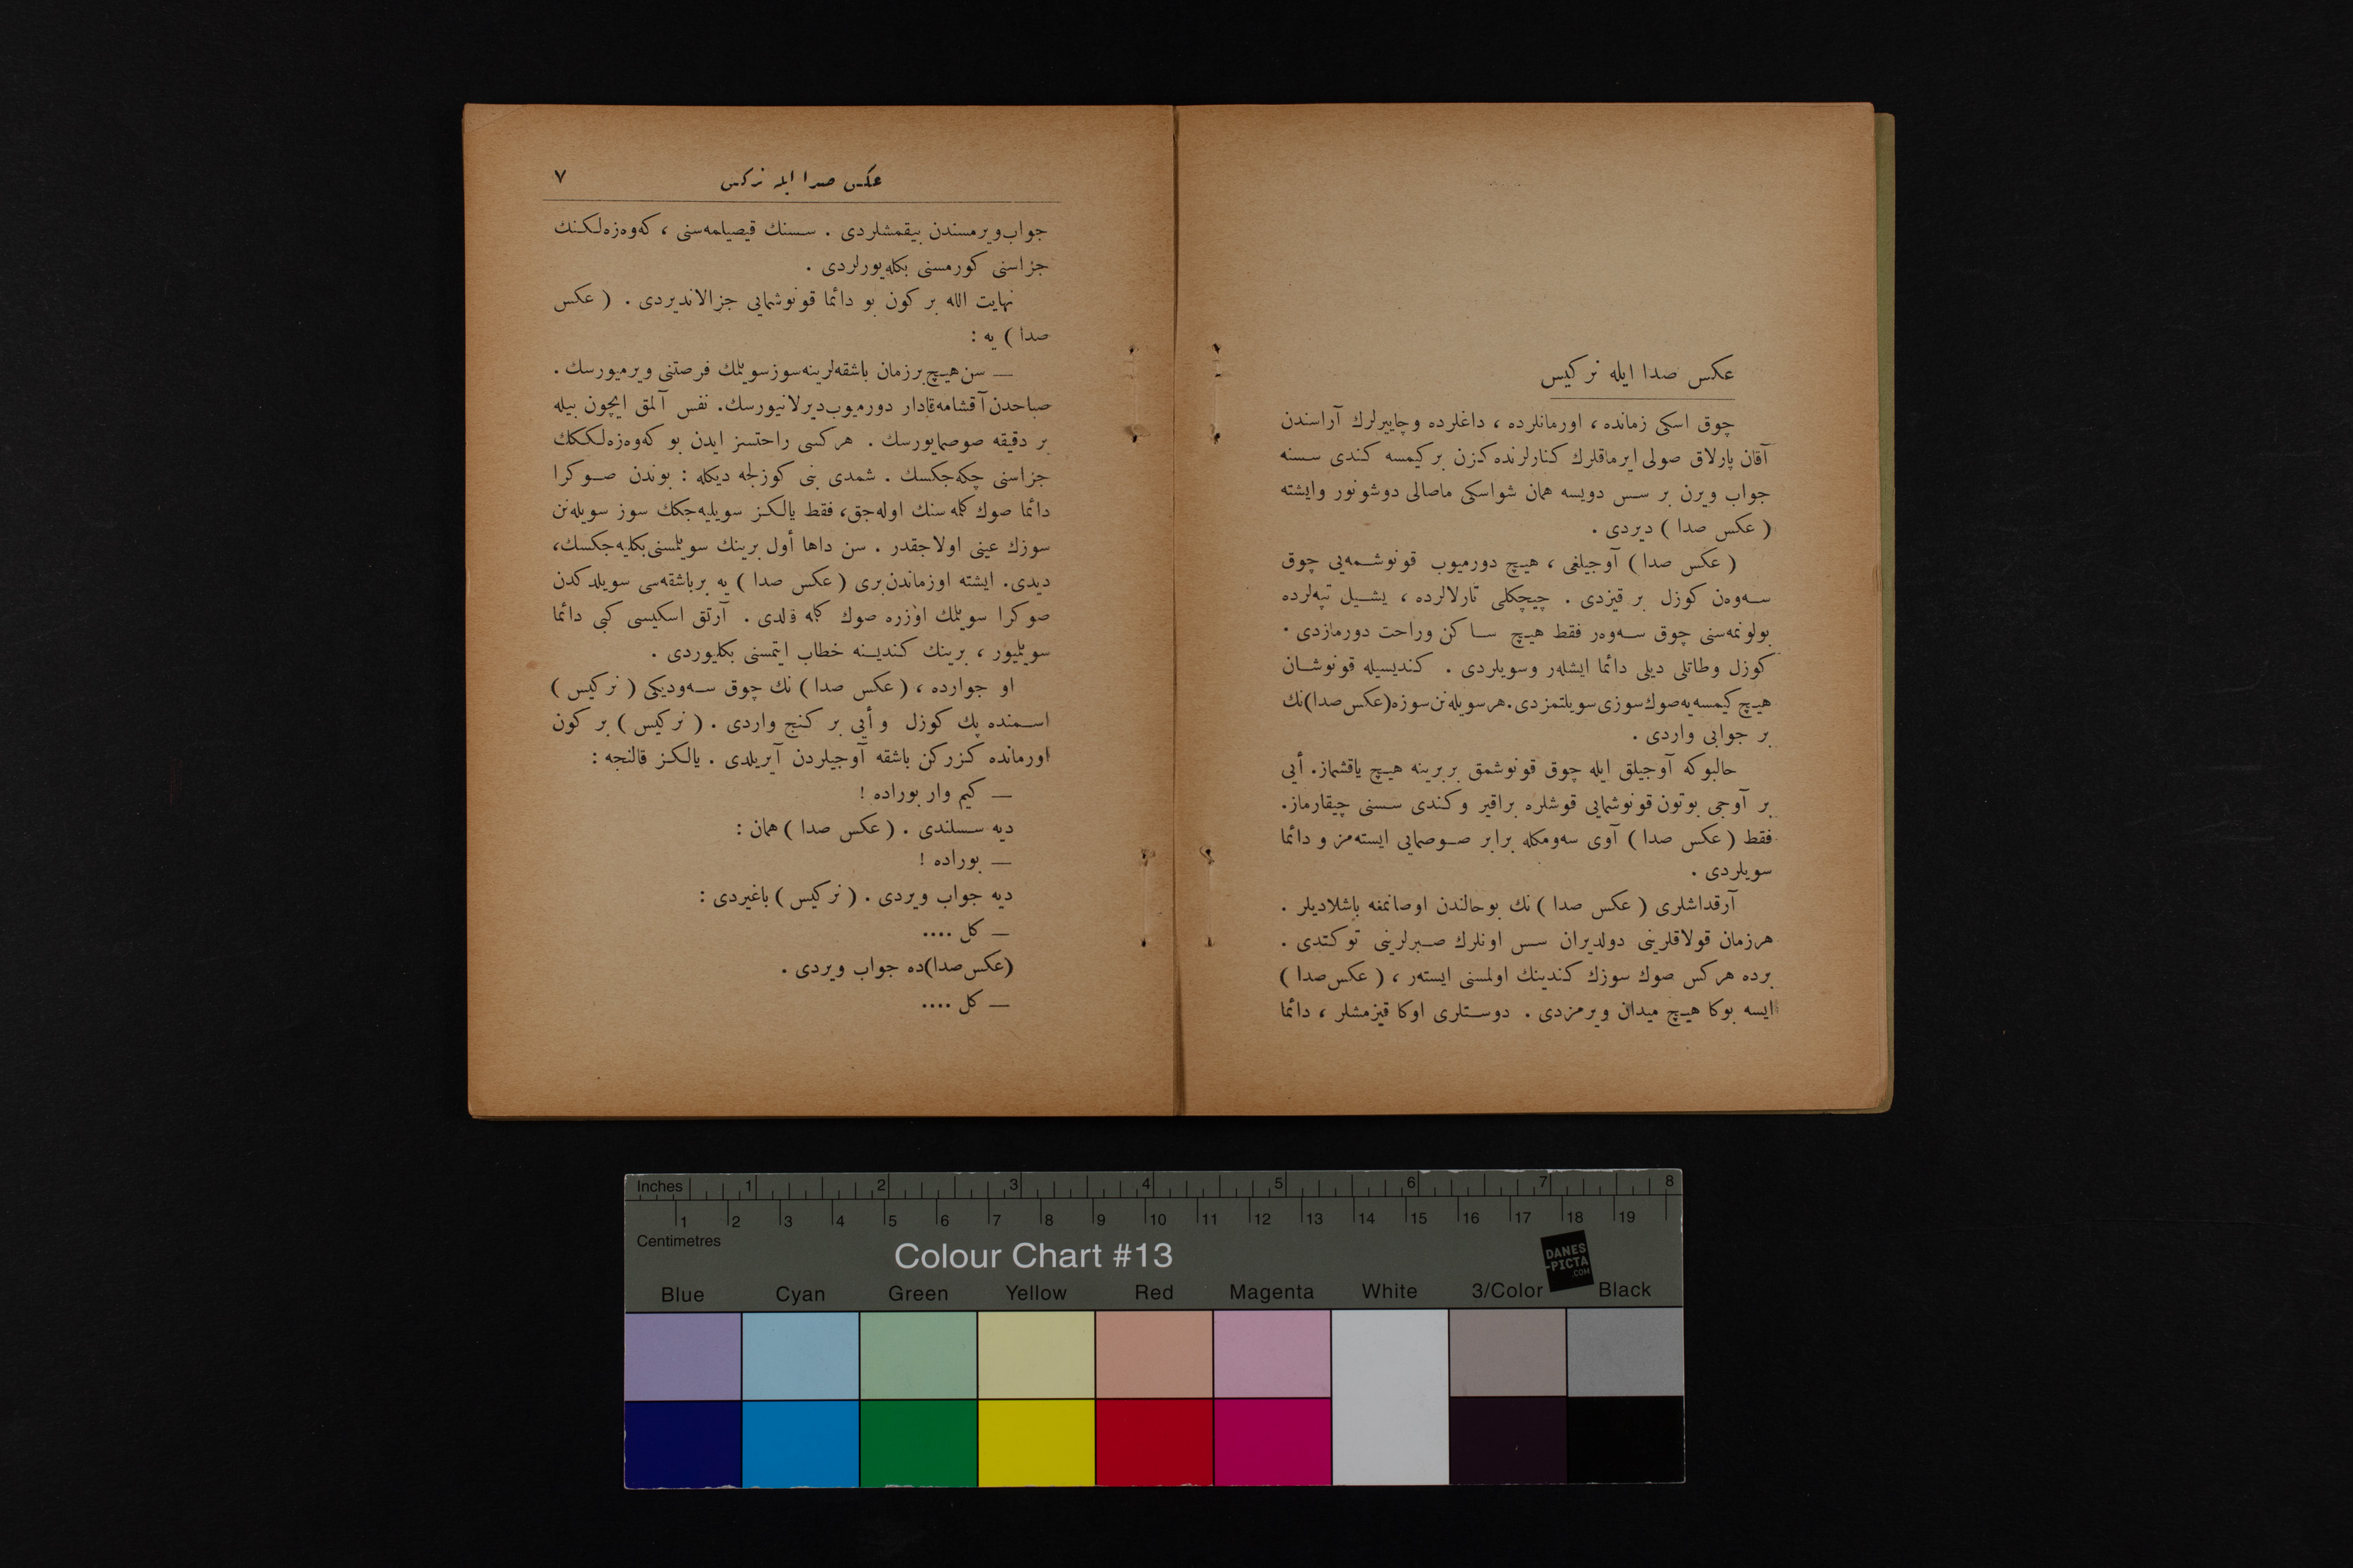 عكس صدا ايله نركيس
چوق اسكی زمانده ، اورمانلرده ، داغلرده وچاييرلرك آراسندن
آقان پارلاق صولی ايرماقلرك كنارلرنده كزن بر كيمسه كندی سسنه
جواب ويرن بر سس دويسه همان شواسكی ماصالی دوشونور وايشته
( عكس صدا ) ديردی .
( عكس صدا ) آوجيلغی ، هيچ دورميوب قونوشمه‌يی چوق
سه‌وه‌ن كوزل بر قيزدی . چيچكلی تارلالرده ، يشيل تپه‌لرده
بولونمه‌سنی چوق سه‌وه‌ر فقط هيچ ساكن وراحت دورمازدی .
كوزل وطاتلی ديلی دائما ايشله‌ر وسويلردی . كنديسيله قونوشان
هيچ كيمسه‌يه صوك سوزی سويلتمزدی. هر سويله‌نن سوزه (عكس صدا) نك
بر جوابی واردی .
حالبوكه آوجيلق ايله چوق قونوشمق بربرينه هيچ ياقشماز. أيی
بر آوجی بوتون قونوشمايی قوشلره براقير وكندی سسنی چيقارماز.
فقط ( عكس صدا ) آوی سه‌ومكله برابر صوصمايی ايسته‌مز و دائما
سويلردی .
آرقداشلری ( عكس صدا ) نك بوحالندن اوصانمغه باشلاديلر .
هرزمان قولاقلرينی دولديران سس اونلرك صبرلرينی توكتدی .
برده هركس صوك سوزك كندينك اولمسنی ايسته‌ر ، ( عكس صدا )
ايسه بوكا هيچ ميدان ويرمزدی . دوستلری اوكا قيزمشلر ، دائما
عكس صدا ايله نركس ٧
جواب ويرمسندن بيقمشلردی . سسنك قيصيلمه‌سنی ، كه‌وه‌زه‌لكنك
جزاسنی كورمسنی بكله‌يورلردی .
نهايت الله بر كون بو دائما قونوشمايی جزالانديردی . ( عكس
صدا ) يه :
— سن هيچ برزمان باشقه‌لرينه سوز سويلمك فرصتنی ويرميورسك .
صباحدن آقشامه قادار دورميوب ديرلانيورسك. نفس آلمق ايچون بيله
بر دقيقه صوصمايورسك . هركسی راحتسز ايدن بو كه‌وه‌زه‌لككك
جزاسنی چكه‌جكسك . شمدی بنی كوزلجه ديكله : بوندن صوكرا
دائما صوك كلمه سنك اوله‌جق، فقط يالكز سويليه‌جكك سوز سويله‌نن
سوزك عينی اولاجقدر . سن داها أول برينك سويلمسنی بكليه‌جكسك،
ديدی. ايشته اوزماندن بری ( عكس صدا ) يه برباشقه‌سی سويلدكدن
صوكرا سويلمك اوزره صوك كلمه قلدی . آرتق اسكيسی كبی دائما
سويلميور ، برينك كندينه خطاب ايتمسنی بكليوردی .
او جوارده ، ( عكس صدا ) نك چوق سه‌وديكی ( نركيس )
اسمنده پك كوزل و أيی بر كنج واردی . ( نركيس ) بر كون
اورمانده كزركن باشقه آوجيلردن آيريلدی . يالكز قالنجه :
— كيم وار بوراده !
ديه سسلندی . ( عكس صدا ) همان :
— بوراده !
ديه جواب ويردی . ( نركيس ) باغيردی :
— كل ....
(عكس صدا) ده جواب ويردی .
— كل ....
Inches 1 2 3 4 5 6 7 8
1 2 3 4 5 6 7 8 9 10 11 12 13 14 15 16 17 18 19
Centimetres
Colour Chart #13
DANES
-PICTA
.COM
Blue Cyan Green Yellow Red Magenta White 3/Color Black